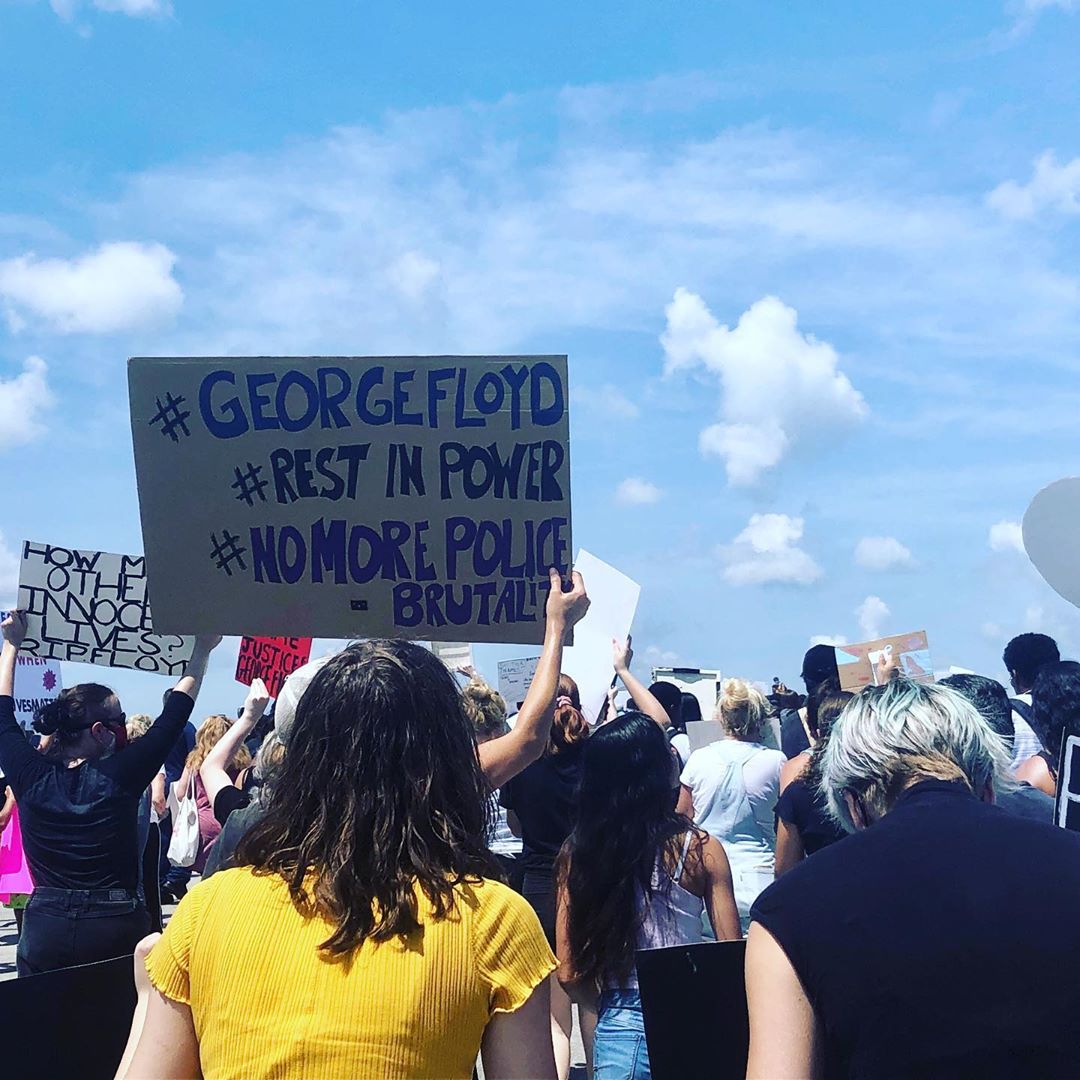 #GEORGEFLOYD
#REST IN POWER
#NO MORE POLICE
BRUTALIT
HOW M
OTHE
INNOCE
LIVES?
RIPFLOY
WHEN
JUSTICE